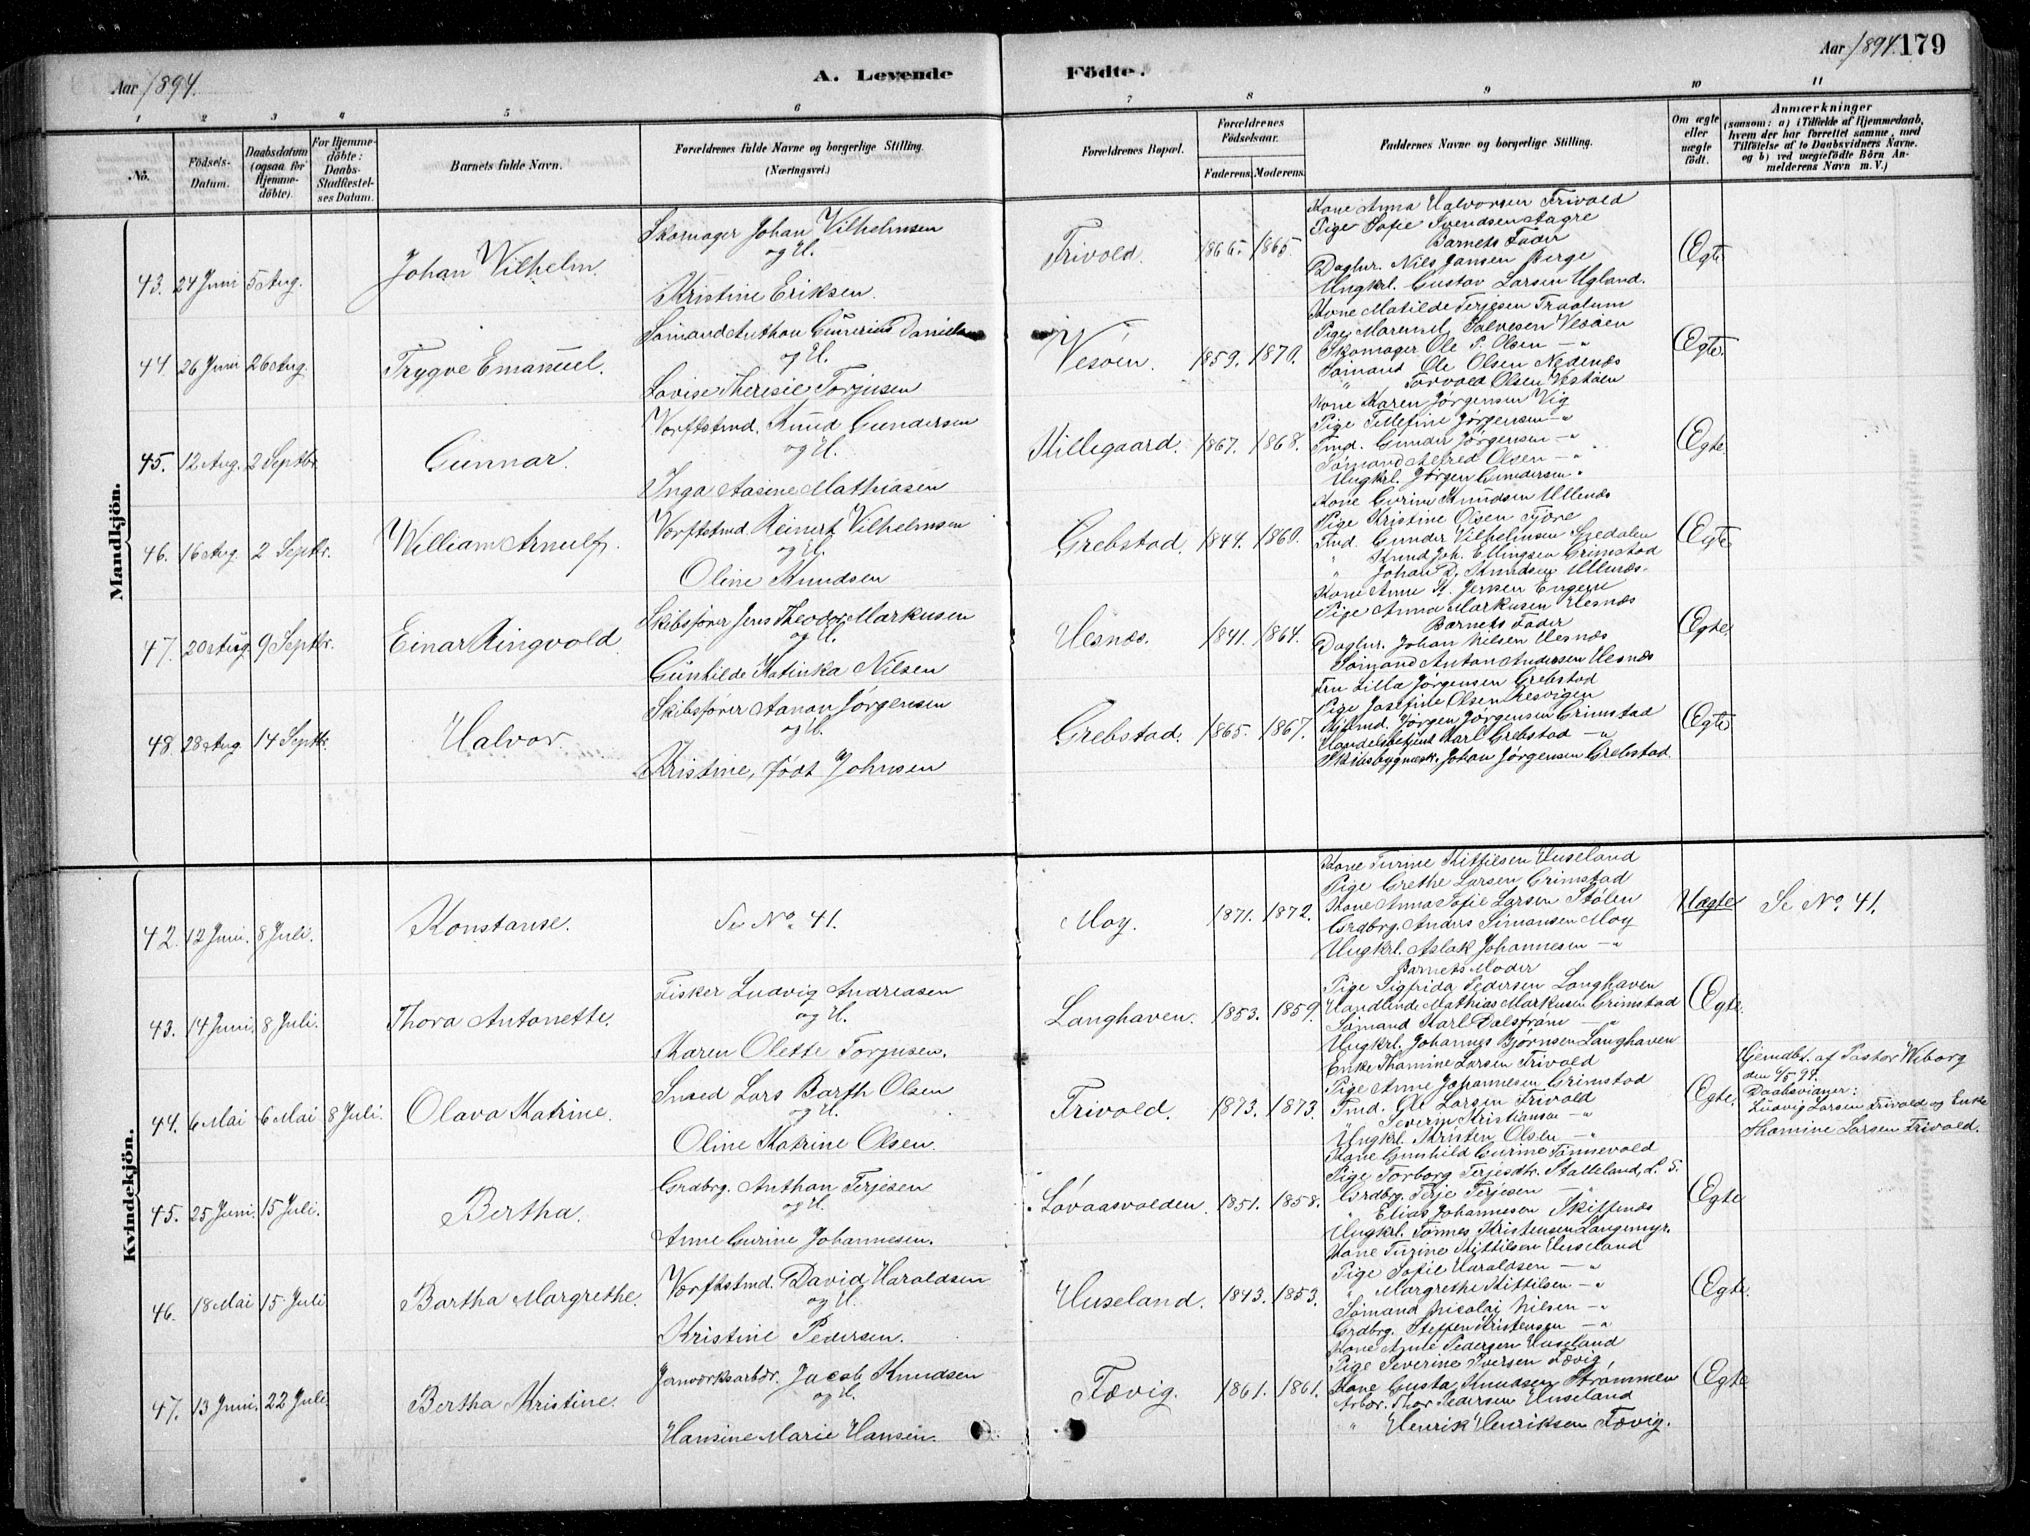 Aar 1894.
A. Levende Födte.
Aar 1894. 179
1 2 3 4 5 6 7 8 9 10 11
No.
Födsels-Datum.
Daabsdatum (ogsaa for Hjemme-döbte).
For Hjemme-döbte: Daabs-Stadfæstel-ses Datum.
Barnets fulde Navn.
Forældrenes fulde Navne og borgerlige Stilling. (Næringsvei.)
Forældrenes Bopæl.
Forældrenes Födselsaar.
Faderens. Moderens.
Faddernes Navne og borgerlige Stilling.
Om ægte eller uægte födt.
Anmærkninger
(saasom: a) i Tilfælde af Hjemmedaab, hvem der har forrettet samme, med Tilföielse af to Daabsvidners Navne. og b) ved uægtefödte Börn An-melderens Navn m. V.)
Mandkjön.
43. 24 Juni 5 Aug. Johan Vilhelm.
Skomager Johan Vilhelmsen
og H.
Kristine Eriksen.
Frivold. 1865. 1865.
Kone Anna Halvorsen Frivold
Pige Sofie Svendsen Aagre
Barnets Fader
Daglnr. Nils Jansen Berge
Ungkrl. Gustav Larsen Ugland.
Ægte
44. 26 Juni 26 Aug. Trygve Emanuel.
Sömand Anthon Gunerius Daniels
og H.
Lovise Theresie Torjusen
Vesöen. 1859. 1870.
Kone Matilde Terjesen Traalum
Pige Maren M. Salvesen Vesöen
Skomager Ole P. Olsen — "
Sömand Ole Olsen Nedenæs
" Torvald Olsen Vesöen
Ægte.
45. 12 Aug. 2 Septbr. Gunnar.
Værftstmd. Knud Gundersen
og H.
Inga Aasine Mathiasen
Killegaard. 1867. 1868.
Kone Karen Jørgensen Vig
Pige Tellefine Jørgensen — "
Tmd. Gunder Jørgensen — "
Sømand Alfred Olsen — "
Ungkrl. Jørgen Gundersen "
Ægte.
46. 16 Aug. 2 Septbr. William Arnulf.
Værftstmd Reinert Vilhelmsen
og H.
Oline Knudsen
Grebstad. 1844. 1860.
Kone Gurine Knudsen Ullenæs
Pige Kristine Olsen Fjære
Tmd. Gunder Vilhelmsen Spedalen
" Knud Joh. Ellingsen Grimstad
" Johan R. Knudsen Ullenæs.
Ægte
47. 20 Aug. 9 Septbr. Einar Ringvold.
Skibsfører Jens Theodor Markusen
og H.
Gunhilde Katinka Nilsen
Hesnæs. 1841. 1864.
Kone Anne K. Jensen Engene
Pige Anna Markusen Hesnæs
Barnets Fader
Daglnr. Johan Nilsen Hesnæs
Sømand Anton Andersen Hesnæs
Ægte.
48. 28 Aug. 14 Septbr. Halvor.
Skibsfører Aanon Jørgensen
og H.
Kristine, født Johnsen
Grebstad. 1865. 1867.
Fru Lilla Jørgensen Grebstad
Pige Josefine Olsen Resvigen
Kjöbmd. Jørgen Jørgensen Grimstad
Handelsbetjent Karl Grebstad — "
Skibsbygmæst. Johan Jørgensen Grebstad.
Ægte
Kvindekjön.
42. 12 Juni. 8 Juli. Konstanse.
Se No. 41.
Moy. 1871. 1872.
Kone Turine Kittilsen Huseland
Pige Grethe Larsen Grimstad
Kone Anna Sofie Larsen Stølen
Grdbrg. Anders Simonsen Moy
Ungkrl. Aslak Johannesen — "
Uægte
Se No. 41.
43. 14 Juni. 8 Juli. Thora Antonette.
Fisker Ludvig Andreasen
og H.
Karen Olette Torjusen.
Langhaven. 1853. 1859.
Barnets Moder
Pige Sigfrida Pedersen Langhaven
Handlende Mathias Markusen Grimstad
Sømand Karl Dalstrøm — "
Ungkrl. Johannes Bjørnsen Langhaven
Ægte.
44. 6 Mai 6 Mai 8 Juli. Olava Katrine.
Smed Lars Barth Olsen
og H.
Oline Katrine Olsen.
Frivold. 1873. 1873.
Enke Thomine Larsen Frivold
Pige Anne Johannesen Grimstad
Tmd. Ole Larsen Frivold
" Severin Kristiansen — "
Ungkrl. Kristen Olsen — "
Ægte.
Hjemdbt. af Pastor Wiborg
den 6/5 94.
Daabsvidner:
Ludvig Larsen Frivold og Enke
Thomine Larsen Frivold.
45. 25 Juni. 15 Juli. Bertha.
Grdbrg. Anthon Terjesen
og H.
Anne Gurine Johannesen.
Løvaasvolden. 1851. 1858.
Kone Gunhild Gurine Tønnevold
Pige Torborg Terjesdtr. Stalleland, L. S.
Grdbrg. Terje Terjesen — "
" Elias Johannesen Skiftenæs
Ungkrl. Tønnes Kristensen Langemyr.
Ægte
46. 18 Mai 15 Juli Bartha Margrethe.
Værftstmd. David Haraldsen
og H.
Kristine Pedersen.
Huseland. 1843. 1853.
Kone Turine Kittilsen Huseland
Pige Sofie Haraldsen — "
" Margrethe Kittilsen — "
Sømand Nicolai Nilsen — "
Grdbrg. Steffen Kristensen — "
Ægte.
47. 13 Juni. 22 Juli. Bertha Kristine.
Jernværksarbdr. Jacob Knudsen
og H.
Hansine Marie Hansen.
Fævig. 1861. 1861.
Kone Pedersen Huseland
Pige Severine Iversen Fævig
Kone Gusta Knudsen Strømmen
Arbdr. Thor Pedersen Huseland
" Henrik Henriksen Fævig.
Ægte